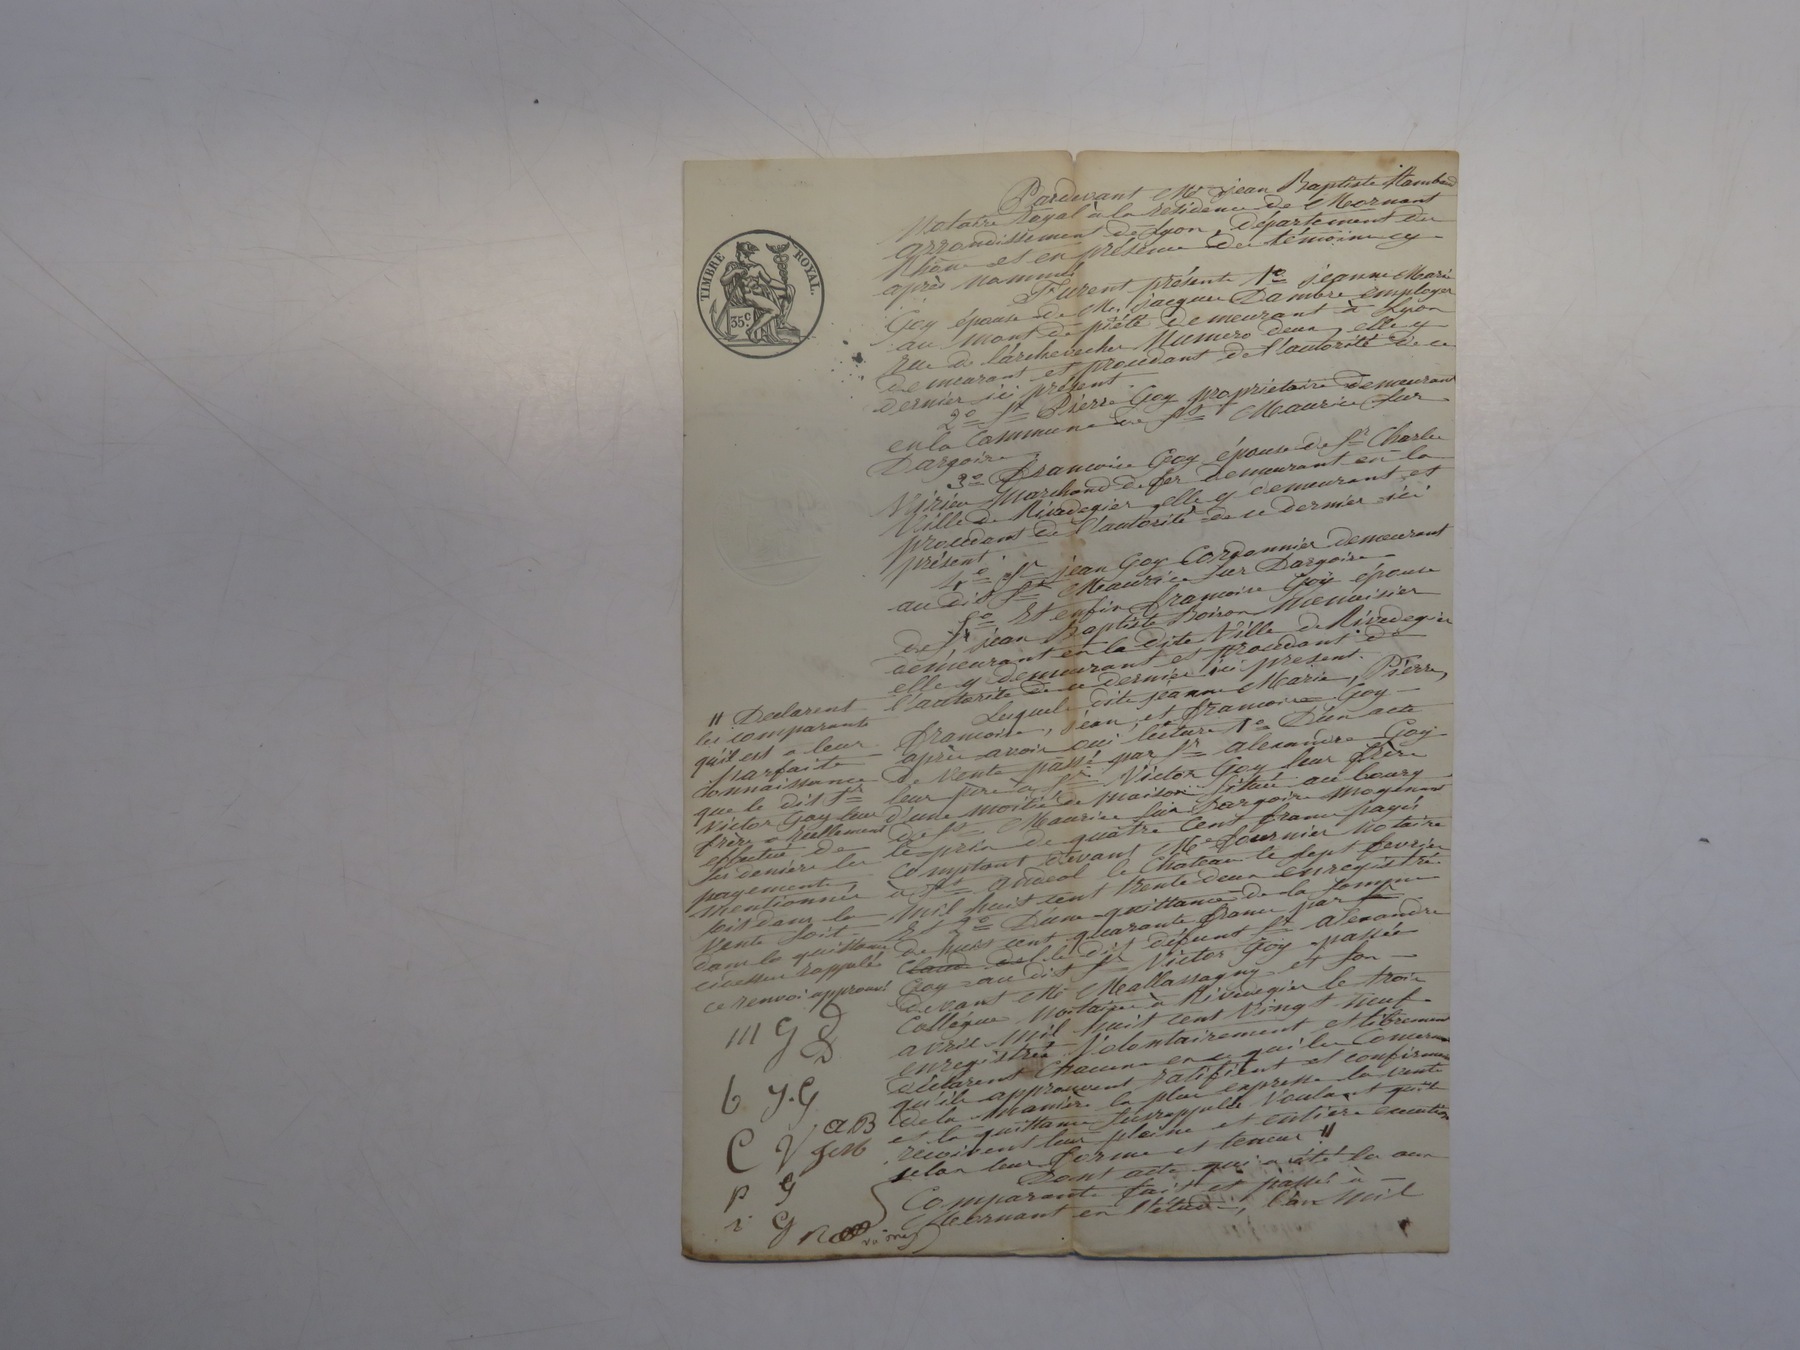 TIMBRE ROYAL.
35 c.
Pardevant Me jean Baptiste
Notaire Royal à la résidence de Mornant
arrondissement de Lyon, département du
Rhône et en présence des témoins cy
après Nommés
Furent présents 1o jeanne Marie
Goy épouse de Mr. jacques Dambre employer
au mont de piété demeurant à Lyon
Rue de l'archeveché Numero deux, elle y
demeurant et procédant de l'autorité de ce
dernier ici présent.
2o Sr Pierre Goy propriétaire demeurant
en la Commune de St Maurice Sur
Dargoire.
3o francoise Goy épouse de Sr Charles
Marchand de fer demeurant en la
Ville de Rivedegier elle y demeurant et
procédant de l'autorité de ce dernier ici
présent.
4o Sr jean Goy Cordonnier demeurant
au dit St Maurice Sur Dargoire
5o Et enfin francoise Goy épouse
de Sr jean Baptiste Boiron Menuisier
demeurant en la dite Ville de Rivedegier
elle y demeurant et procédant de
l'autorité de ce dernier ici present.
Lesquels dits jeanne Marie, Pierre,
francoise, jean, et francoise Goy
après avoir oui lecture 1o D'un acte
de Vente passé par Sr alexandre Goy
leur père à Sr Victor Goy leur frère
d'une moitié de maison Située au bourg
de St Maurice Sur Dargoire moyenant
le prix de quatre Cent francs payés
Comptant devant Me fournier Notaire
à St andeol le Chateau le Sept fevrier
Mil huit cent trente deux enregistré
Et 2o D'une quittance de la Somme
de huit cent quarante francs par
le dit défunt Sr alexandre
Goy au dit Sr Victor Goy passée
devant Me Mallassagny et Son
Collègue Notaires à Rivedegier le trois
avril Mil huit cent Vingt Neuf
enregistrée Volontairement et librement
déclarent Chacun en ce qui les Concerne
qu'ils approuvent ratifient et confirment
de la Manière la plus expresse la Vente
et la quittance Susrappellé Voulant qu'ils
recoivent leur pleine et entière execution
selon leur forme et teneur //
Dont acte qui a été lu aux
Comparants fait et passé à
Mornant en l'étude, l'an Mil
// Declarent
les comparants
qu'il est a leur
parfaite
Connaissance
que le dit Sr
Victor Goy leur
frère a réellement
effectué de
Ses deniers les
payements
Mentionnés
soit dans la
Vente Soit
dans la quittance
cidessus rappelés
ce renvoi approuvé
M G D
D
b J. G
C V a B
J M
p G
i G